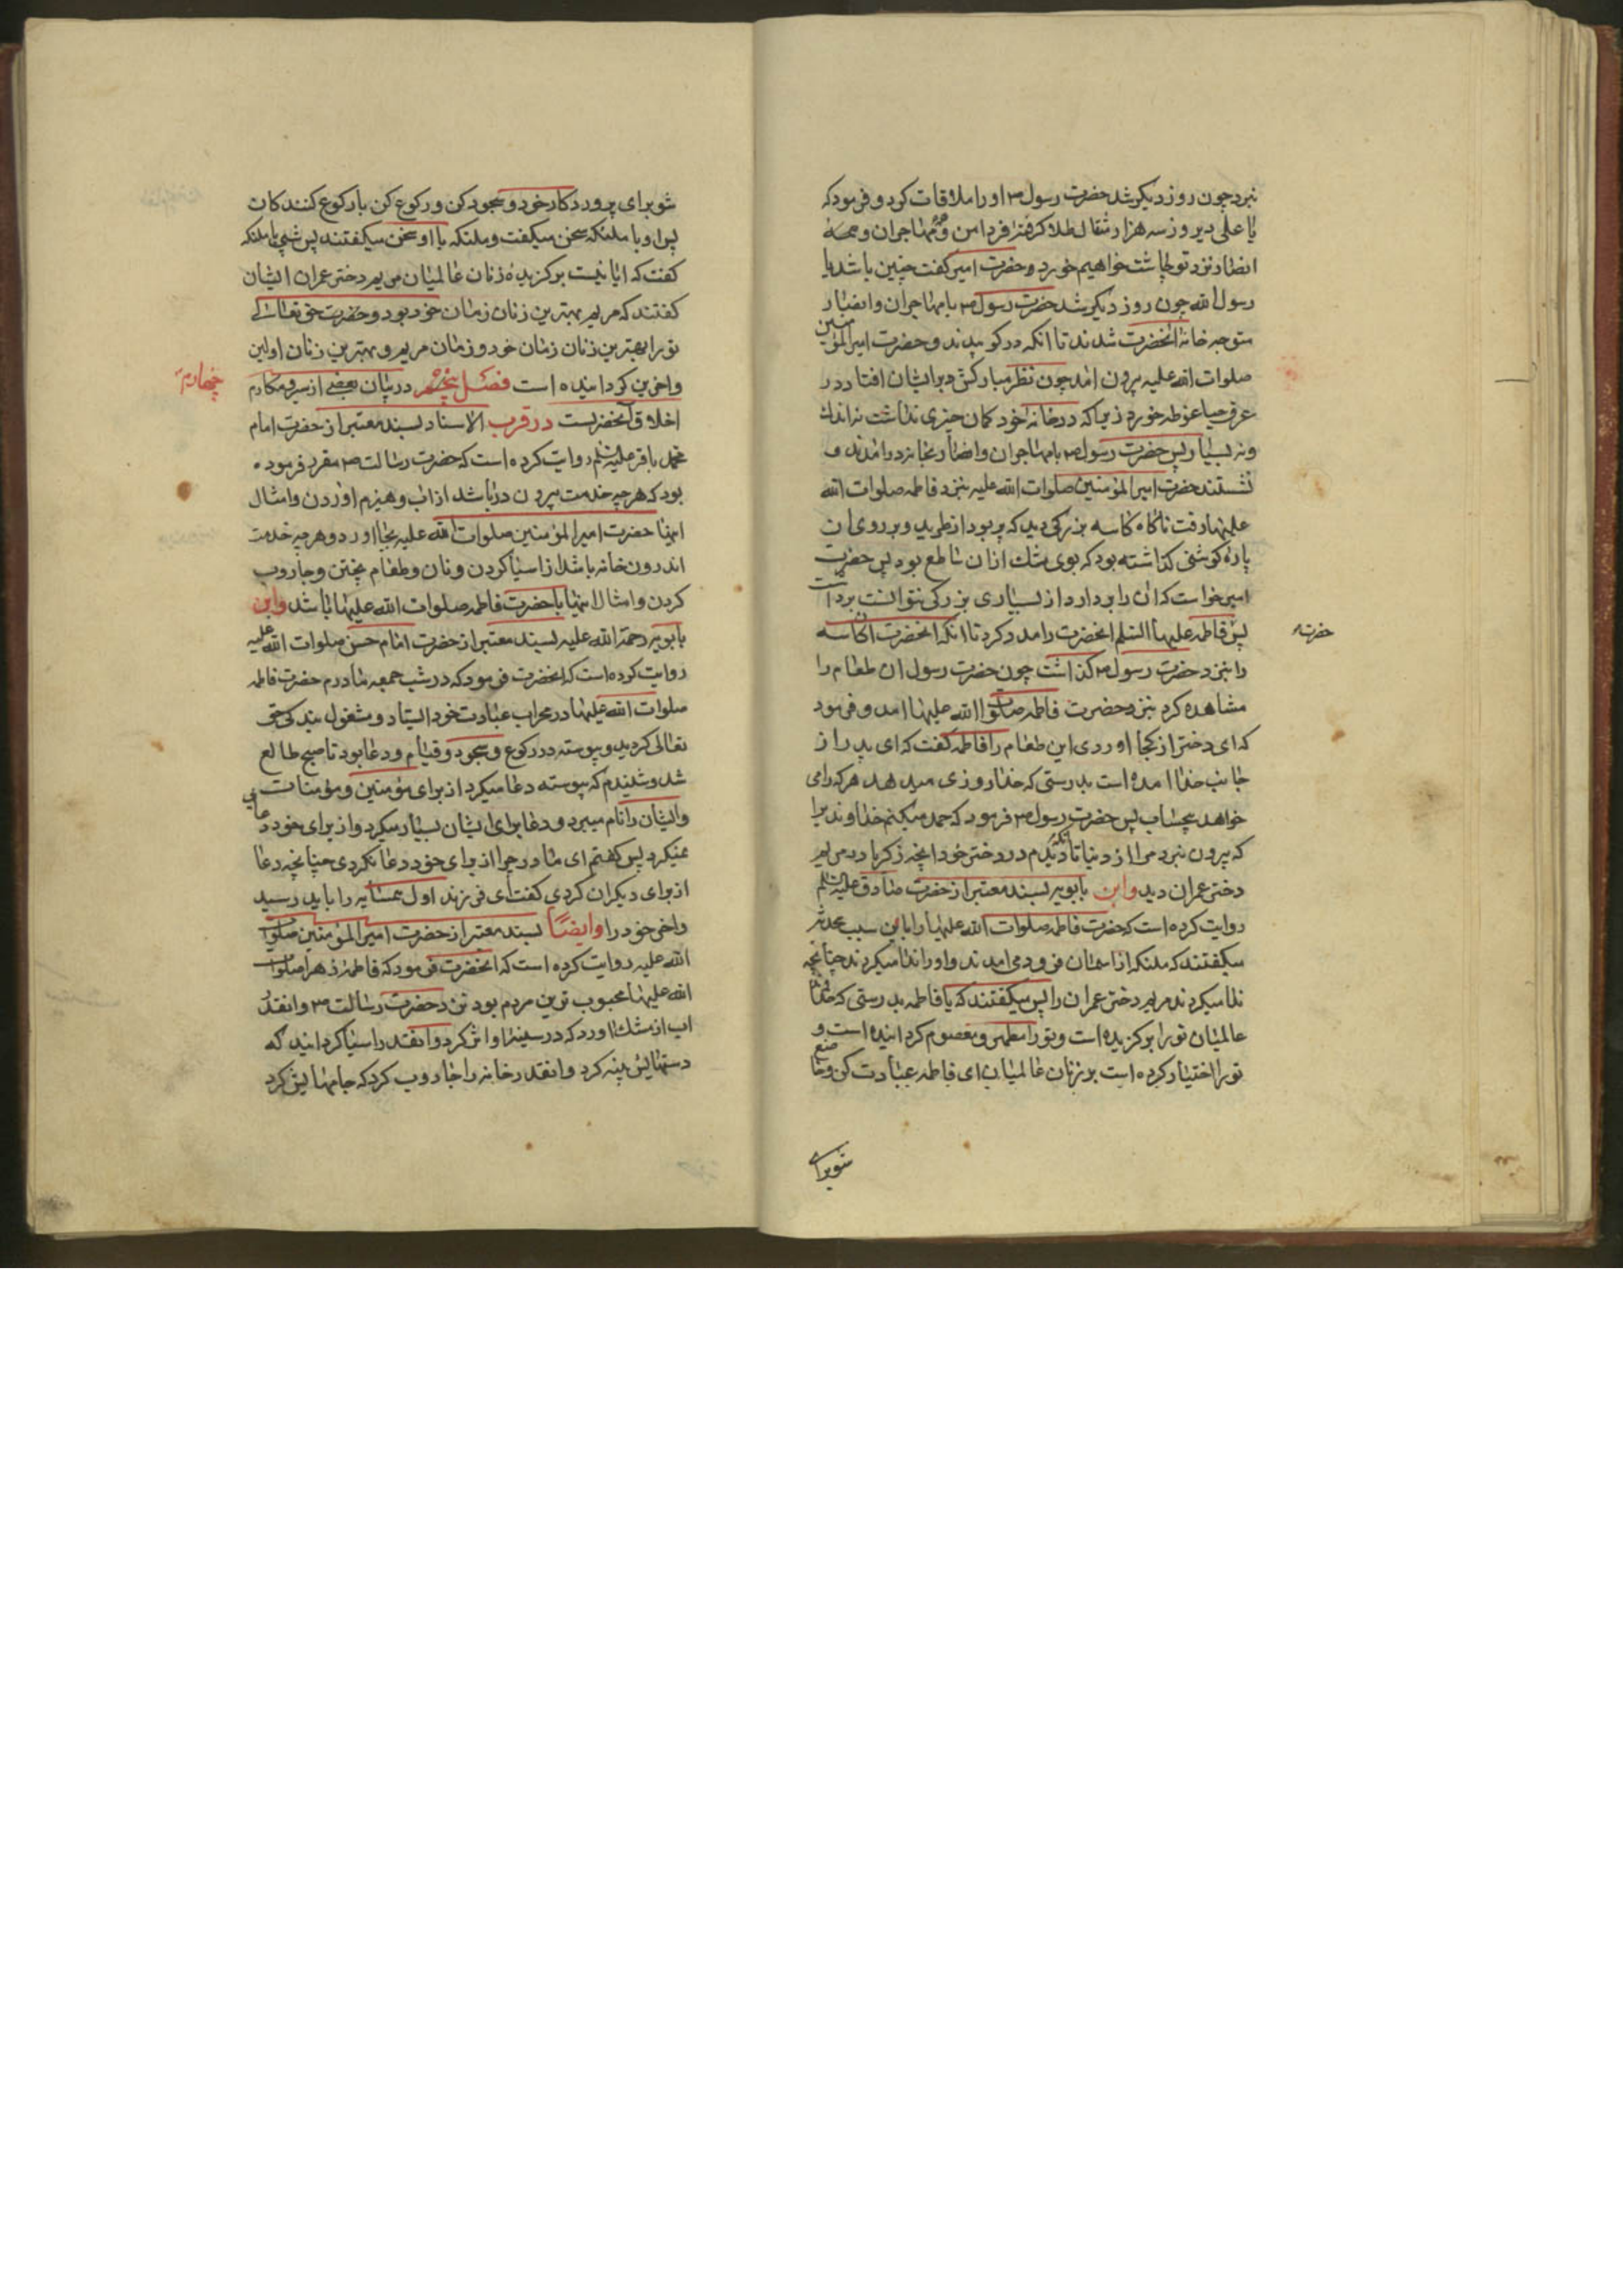 نبرد چون روز دیکر شد حضرت رسول ص او را ملاقات کرد و فرمود که
یا علی دیروز سه هزار مثقال طلا کرفتی فردا من و مهاجران و همه
انصار نزد تو چاشت خواهیم خورد و حضرت امیر کفت چنین باشد یا
رسول الله چون روز دیکر شد حضرت رسول ص با مهاجران و انصار
متوجه خانه آنحضرت شدند تا انکه در کوبیدند و حضرت امیر المؤمنین
صلوات الله علیه بیرون امد چون نظر مبارکش بر ایشان افتاد در
عرق حیا غوطه خورد زیرا که در خانه خود کمان چیزی نداشت نه اندک
و نه بسیار پس حضرت رسول ص با مهاجران و انصار بخانه در امدند و
نشستند حضرت امیر المؤمنین صلوات الله علیه بنزد فاطمه صلوات الله
علیها رفت ناکاه کاسه بزرکی دید که پر بود از طرید و بر روی ان
پاره کوشتی کذاشته بود که بوی مشک از ان ساطع بود پس حضرت
امیر خواست که ان را بردارد از بسیاری بزرکی نتوانست برداشت
پس فاطمه علیها السلم انحضرت را مدد کرد تا انکه انحضرت ان کاسه
حضرت
را بنزد حضرت رسول ص کذاشت چون حضرت رسول ان طعام را
مشاهده کرد بنزد حضرت فاطمه صلوات الله علیها امد و فرمود
که ای دختر از کجا اوردی این طعام را فاطمه کفت که ای پدر از
جانب خدا امده است بدرستی که خدا روزی میدهد هر که را می
خواهد بیحساب پس حضرت رسول ص فرمود که حمد میکنم خداوندیرا
که بیرون نبرد مرا از دنیا تا انکه دیدم در دختر خود انچه زکریا در مریم
دختر عمران دید وابن بابویه بسند معتبر از حضرت صادق علیه السلم
روایت کرده است که حضرت فاطمه صلوات الله علیها را باین سبب محدثه
میکفتند که ملئکه از اسمان فرود می امدند و او را ندا میکردند چنانچه
ندا میکردند مریم دختر عمران را پس میکفتند که یا فاطمه بدرستی که خدا
عالمیان تو را برکزیده است و تو را مطهر و معصوم کردانیده است و
تو را اختیار کرده است بر زنان عالمیان ای فاطمه عبادت کن و خاضع
شو برای
شو برای پروردکار خود و سجود کن و رکوع کن با رکوع کنندکان
پس او با ملئکه سخن میکفت و ملئکه با او سخن میکفتند پس شبی با ملئکه
کفت که ایا نیست برکزیده زنان عالمیان مریم دختر عمران ایشان
کفتند که مریم بهترین زنان زمان خود بود و حضرت حق تعالی
تو را بهترین زنان زمان خود و زمان مریم و بهترین زنان اولین
و اخرین کردانیده است فصل پنجم در بیان بعضی از سیر و مکارم
چهارم
اخلاق آنحضرتست در قرب الاسناد بسند معتبر از حضرت امام
محمد باقر علیه السلم روایت کرده است که حضرت رسالت ص مقرر فرموده
بود که هر چه خدمت بیرون در باشد از اب و هیزم اوردن و امثال
اینها حضرت امیر المؤمنین صلوات الله علیه بجا اورد و هر چه خدمت
اندرون خانه باشد از اسیا کردن و نان و طعام پختن و جاروب
کردن و امثال اینها با حضرت فاطمه صلوات الله علیها باشد وابن
بابویه رحمة الله علیه بسند معتبر از حضرت امام حسن صلوات الله علیه
روایت کرده است که انحضرت فرمود که در شب جمعه مادرم حضرت فاطمه
صلوات الله علیها در محراب عبادت خود ایستاد و مشغول بندکی حق
تعالی کردید و پیوسته در رکوع و سجود و قیام و دعا بود تا صبح طالع
شد و شنیدم که پیوسته دعا میکرد از برای مؤمنین و مؤمنات
و ایشان را نام میبرد و دعا برای ایشان بسیار میکرد و از برای خود دعایی
نمیکرد پس کفتم ای مادر چرا از برای خود دعا نکردی چنانچه دعا
از برای دیکران کردی کفت ای فرزند اول همسایه را باید رسید
و اخر خود را وایضا بسند معتبر از حضرت امیر المؤمنین صلوات
الله علیه روایت کرده است که انحضرت فرمود که فاطمه زهرا صلوات
الله علیها محبوب ترین مردم بود نزد حضرت رسالت ص و انقدر
اب از مشک اورد که در سینه او اثر کرد و انقدر اسیا کردانید که
دستهایش پینه کرد و انقدر خانه را جاروب کرد که جامهایش کرد